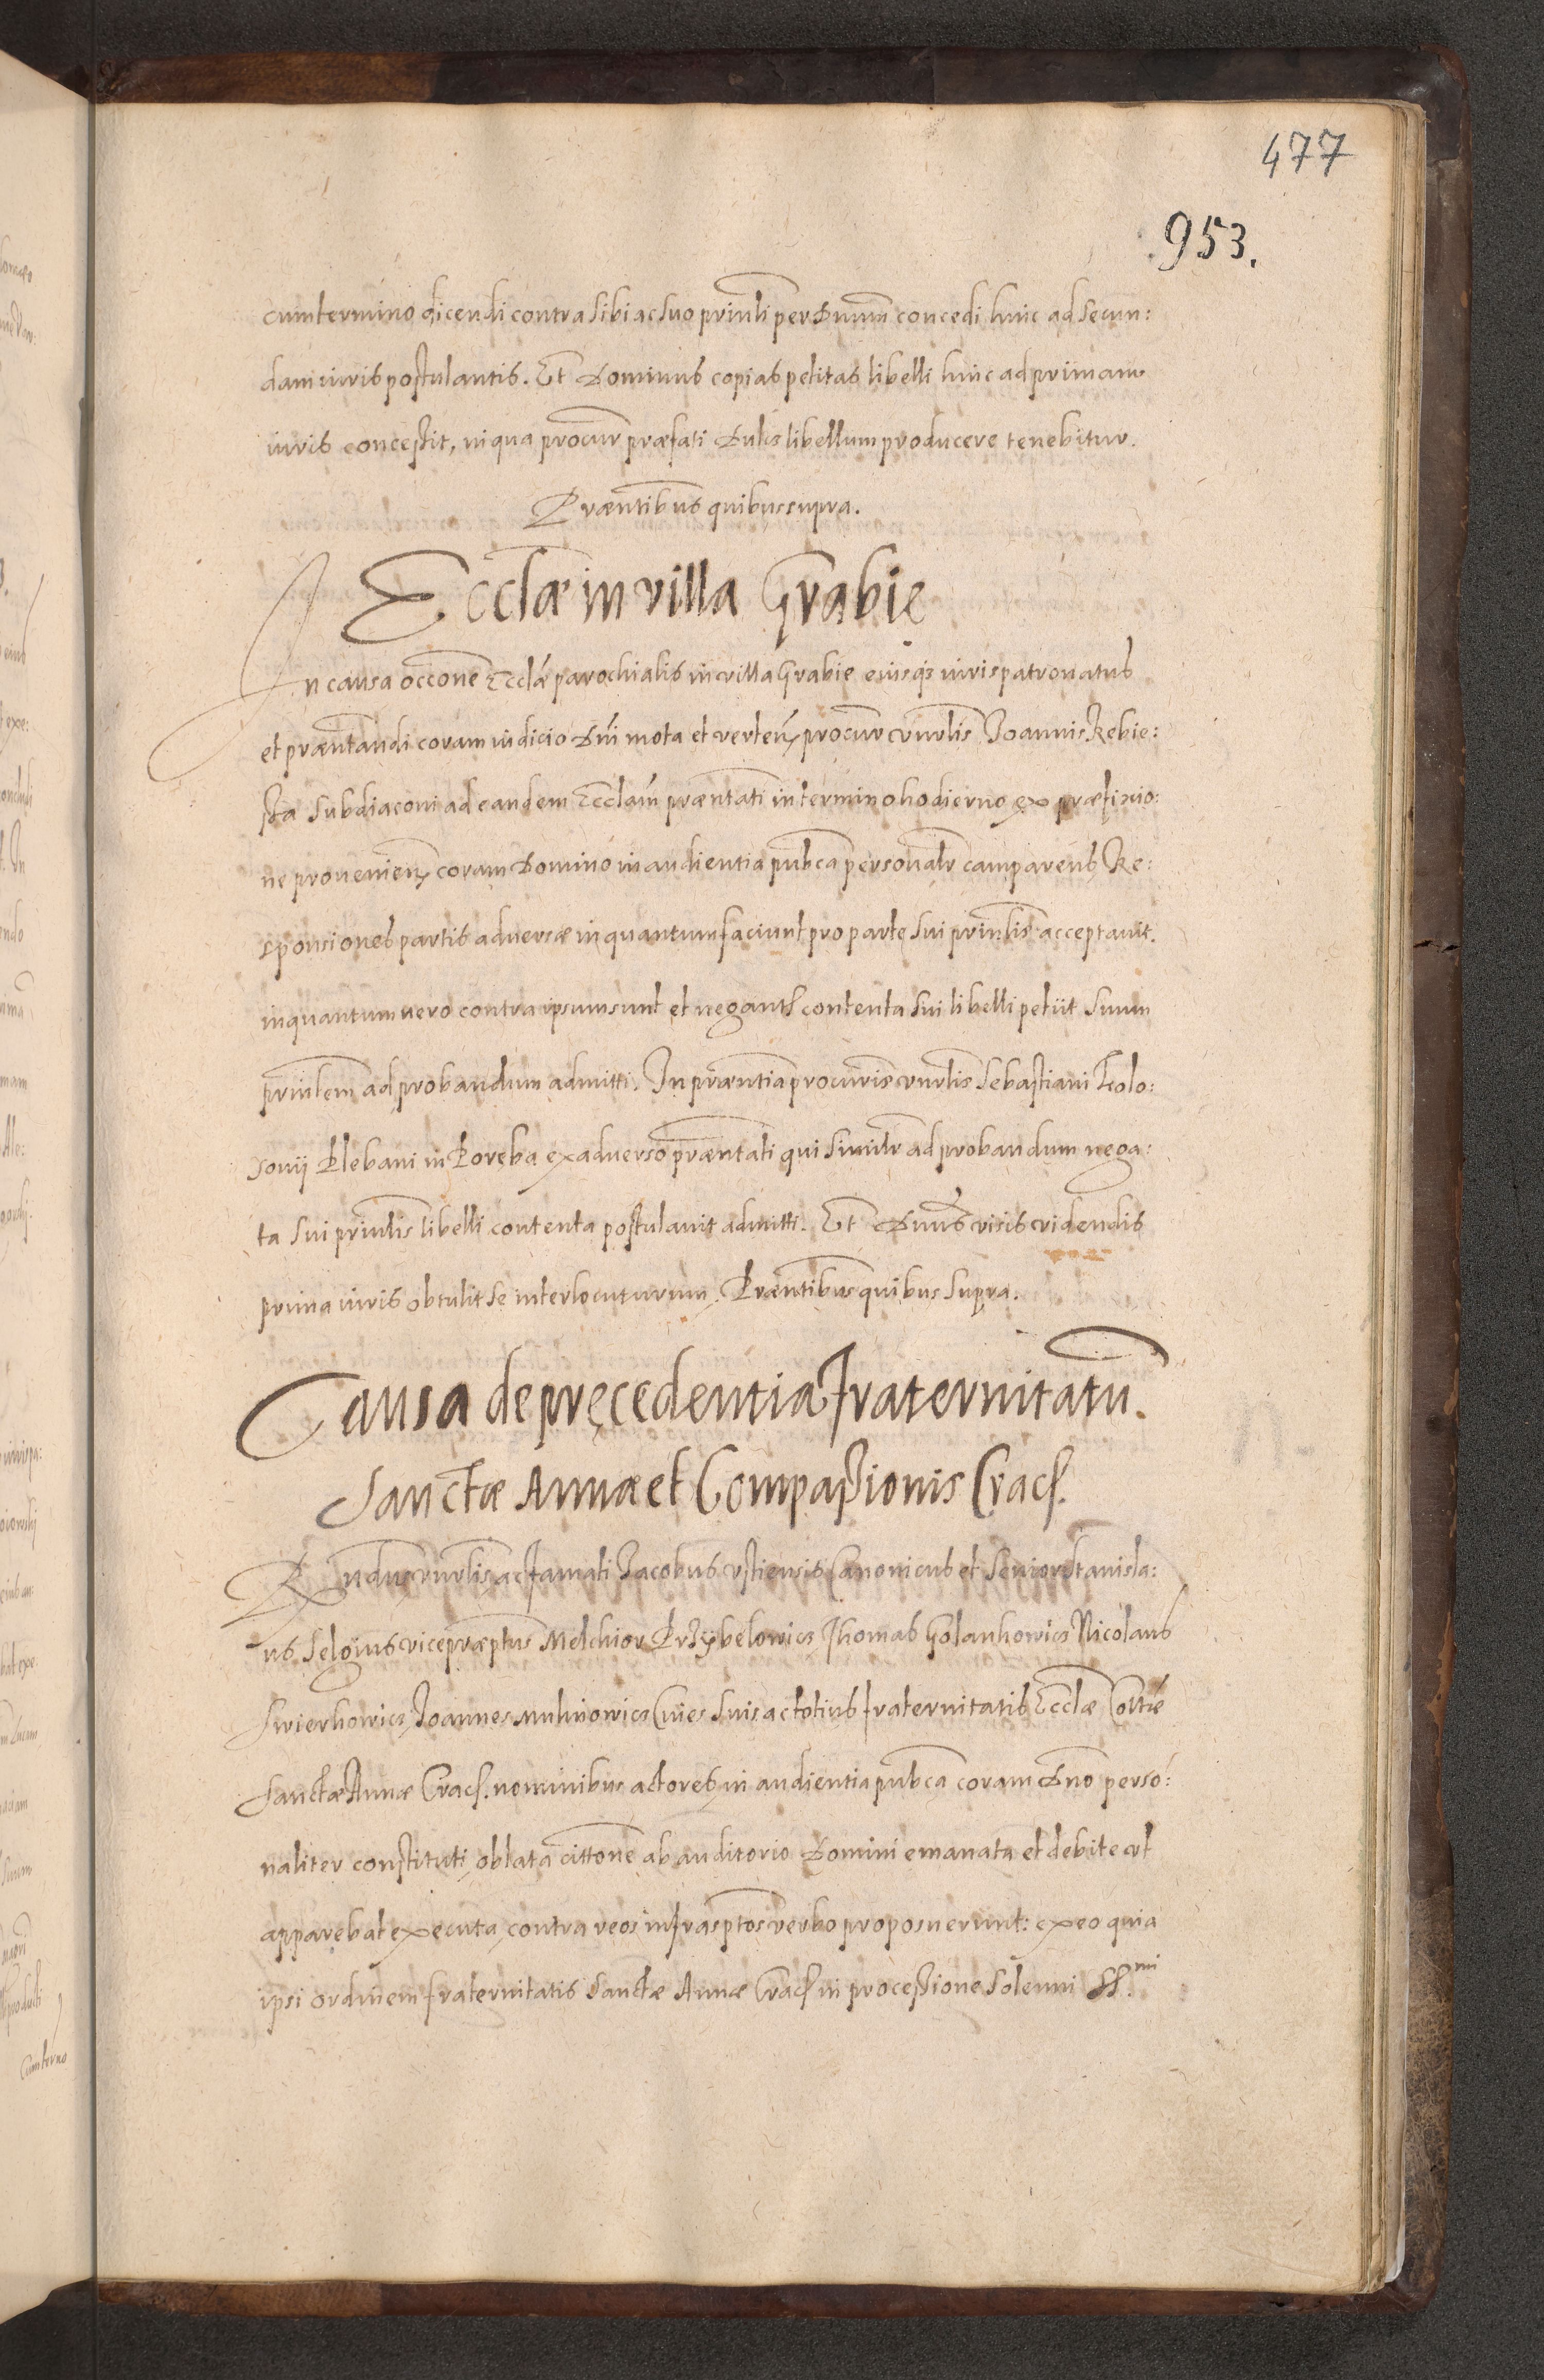 477
953.
cum termino dicendi contra sibi ac suo prinli per Dnum concedi hinc ad secun:
dam iuris postulantis. Et Dominus copias petitas libelli hinc ad primam
iuris concessit, in qua procur præfati Ducis libellum producere tenebitur.
Præntibus quibus supra.
Ecclæ in villa Grabie
In causa occone Ecclæ parochialis in villa Grabie eiusqz iuris patronatus
et præntandi coram iudicio Dni mota et verten procur vnrlis Joannis Rebie:
sta subdiaconi ad eandem Ecclam præntati in termino hodierno ex præfixio:
ne provenien coram Domino in audientia pubca personalr camparens Re:
sponsiones partis adversæ in quantum faciunt pro parte sui prinlis acceptavit.
inquantum vero contra ipsum sunt et negant contenta sui libelli petiit suum
prinlem ad probandum admitti. In præntia procuris vnrlis Sebastiani
sonij Plebani in Poręba ex adverso præntati qui similr ad probandum nega:
ta sui prinlis libelli contenta postulavit admitti. Et Dnus visis videndis
prima iuris obtulit se interlocuturum. Præntibus quibus supra.
Causa de pręcedentia fraternitatu.
Sanctæ Annæ et Compassionis Crac.
Rndus vnrlis ac famati Jacobus Vstiensis Canonicus et Senior Stanisla:
us Selgius vicepræptus Melchior Przybelowicz Thomas Golankowicz Nicolaus
Swierkowicz Joannes Mulinowicz Cives suis ac totius fraternitatis Ecclæ
Sanctæ Annæ Crac. nominibus actores in audientia pubca coram Dno perso:
naliter constituti oblata cittone ab auditorio Domini emanata et debite vt
apparebat executa, contra reos infrasptos verbo proposuerunt: ex eo quia
ipsi ordinem fraternitatis Sanctæ Annæ Crac in processione solenni SS.mi